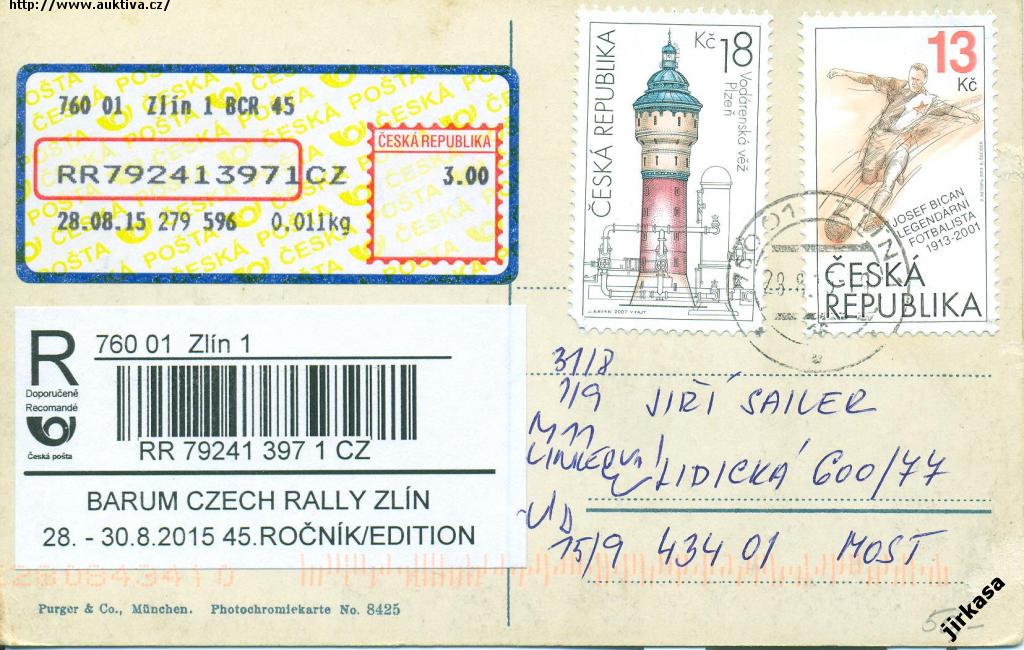 http://www.auktiva.cz/
760 01 Zlín 1 BCR 45
RR792413971CZ
28.08.15 279 596 0,011kg
ČESKÁ REPUBLIKA
3.00
ČESKÁ REPUBLIKA
Kč 18
Vodárenská věž
Plzeň
13
Kč
JOSEF BICAN
LEGENDÁRNÍ
FOTBALISTA
1913-2001
ČESKÁ
REPUBLIKA
R
Doporučeně
Recomandé
Česká pošta
760 01 Zlín 1
RR 79241 397 1 CZ
BARUM CZECH RALLY ZLÍN
28. - 30.8.2015 45.ROČNÍK/EDITION
31/8
1/9
JIŘÍ SAILER
LIDICKÁ 600/77
15/9 434 01 MOST
Purger & Co., München. Photochromiekarte No. 8425
jirkasa